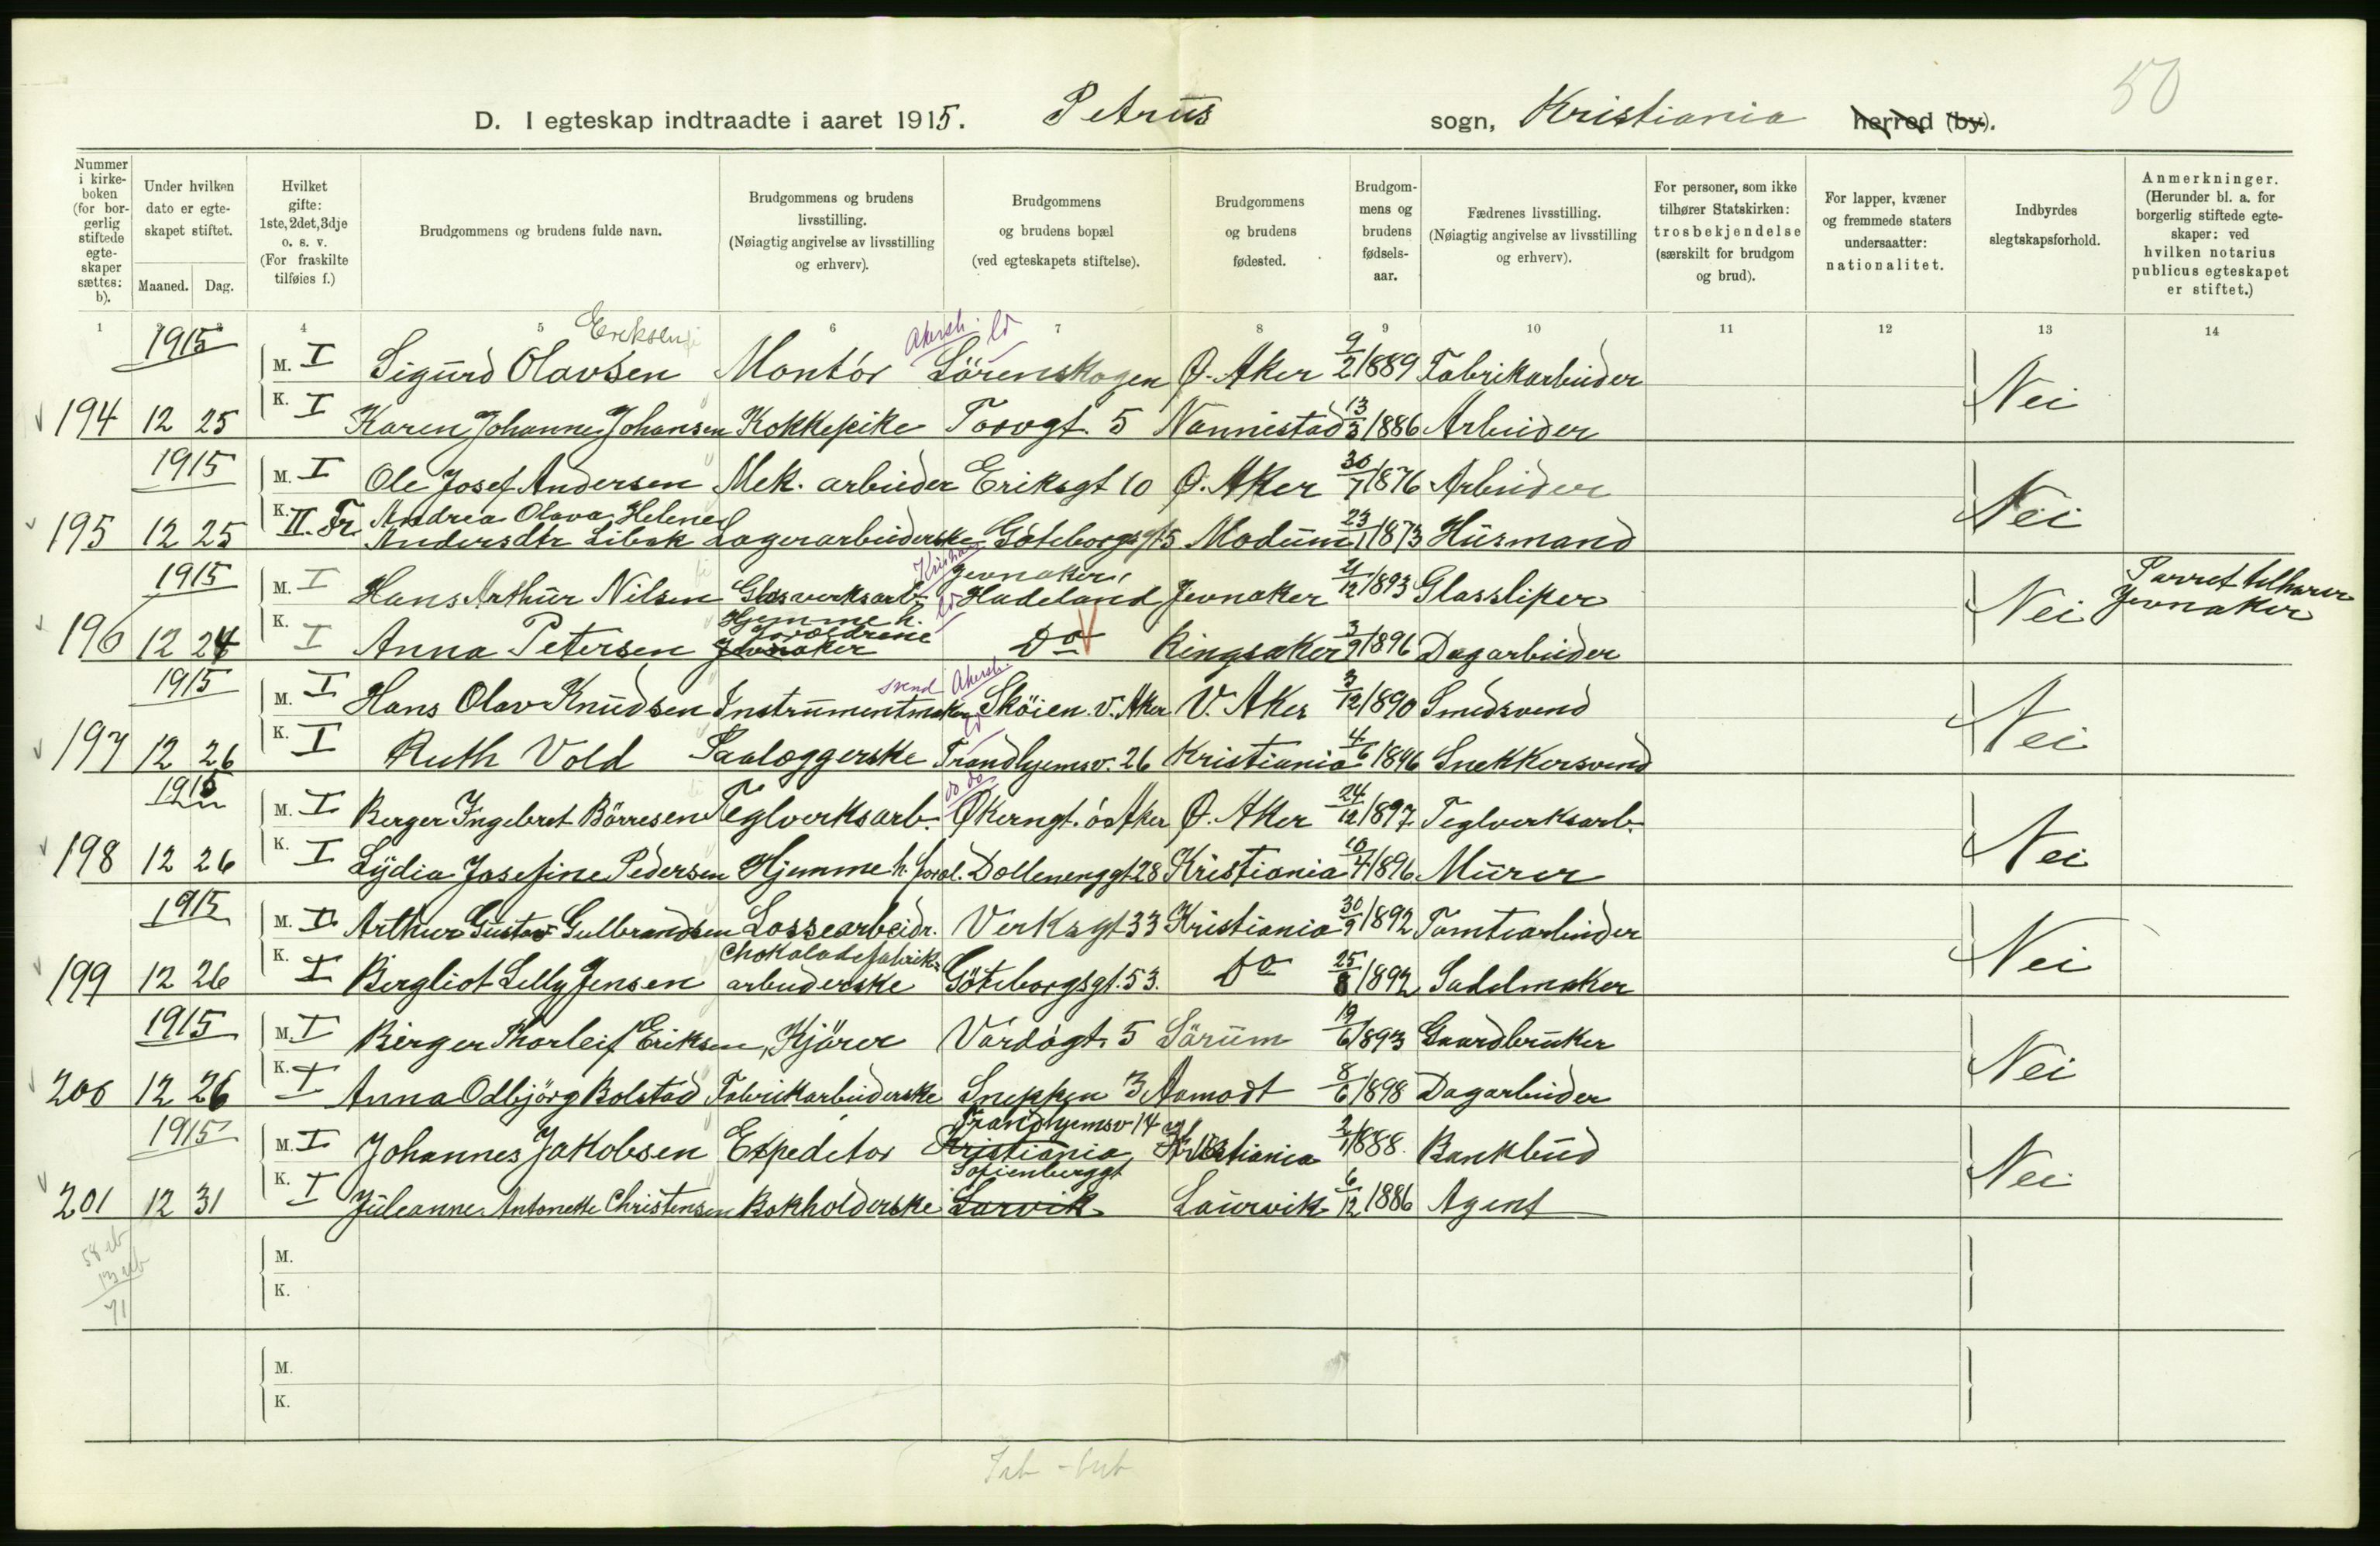 50
D. I egteskap indtraadte i aaret 1915. Petrus sogn, Kristiania herred (by).
Nummer i kirkeboken (for borgerlig stiftede egteskaper sættes: b).
Under hvilken dato er egteskapet stiftet.
Maaned. Dag.
Hvilket gifte: 1ste, 2det, 3dje o. s. v. (For fraskilte tilføies f.)
Brudgommens og brudens fulde navn.
Brudgommens og brudens livsstilling. (Nøiagtig angivelse av livsstilling og erhverv).
Brudgommens og brudens bopæl (ved egteskapets stiftelse).
Brudgommens og brudens fødested.
Brudgommens og brudens fødselsaar.
Fædrenes livsstilling. (Nøiagtig angivelse av livsstilling og erhverv).
For personer, som ikke tilhører Statskirken: trosbekjendelse (særskilt for brudgom og brud).
For lapper, kvæner og fremmede staters undersaatter: nationalitet.
Indbyrdes slegtskapsforhold.
Anmerkninger. (Herunder bl. a. for borgerlig stiftede egteskaper: ved hvilken notarius publicus egteskapet er stiftet.)
1 2 3 4 5 6 7 8 9 10 11 12 13 14
Eriksen Akersh. ld
1915 M. I Sigurd Olavsen Montór Lörenskogen Ø. Aker 9/2 1889 Fabrikarbeider
194 12 25 K. I Karen Johanne Johansen Kokkepike Torvgt. 5 Nannestad 13/3 1886 Arbeider Nei
1915 M. I Ole Josef Andersen Mek. arbeider Eriksgt 10 Ø. Aker 30/7 1876 Arbeider
195 12 25 K. II. Fr. Andrea Olava Helene Andersdtr Libak Lagerarbeiderske Göteborgsgt 5 Modum 23/1 1873 Husmand Nei
1915 M. I Hans Arthur Nilsen Glasverksarb. Jevnaker, Hadeland Jevnaker 4/12 1893 Glassliper Parret tilhører Jevnaker
196 12 24 K. I Anna Petersen Hjemme h. forældrene Jevnaker Do V Ringsaker 3/9 1896 Dagarbeider Nei
1915 M. I Hans Olav Knudsen Instrumentmaker svend Akersh. Sköien. V. Aker V. Aker 3/12 1890 Smedsvend
197 12 26 K. I Ruth Vold Paaloggerske Trondhjemsv. 26 Kristiania 4/6 1896 Snekkersvend Nei
1915 M. I Berger Ingebret Börresen Teglverksarb. do do Økerngt. ö. Aker Ø. Aker 24/12 1897 Teglverksarb.
198 12 26 K. I Lydia Josefine Pedersen Hjemme h. foræl. Dollenenggt 28 Kristiania 10/4 1896 Murer Nei
1915 M. I Arthur Gustav Gulbrandsen Lossearbeidr. Verksgt 33 Kristiania 30/9 1892 Tomtearbeider
199 12 26 K. I Bergliot Lelly Jensen Chokoladefabrikarbeiderske Göteborgsgt. 53. Do 25/8 1892 Sadelmaker Nei
1915 M. I Birger Thorleif Eriksen, Kjörer Vardøgt. 5 Sörum 19/6 1893 Gaardbruker
200 12 26 K. I Anna Odbjörg Bolstad Fabrikarbeiderske Sneppen 3 Aamodt 8/6 1898 Dagarbeider Nei
1915 M. I Johannes Jakobsen Expeditor Trondhjemsv 14 Kristiania Kristiania 2/1 1888. Bankbud
201 12 31 K. I Juleanne Antonette Christensen Bokholderske Sofienberggt Larvik Laurvik 6/12 1886 Agent Nei
M.
K.
71
M.
K.